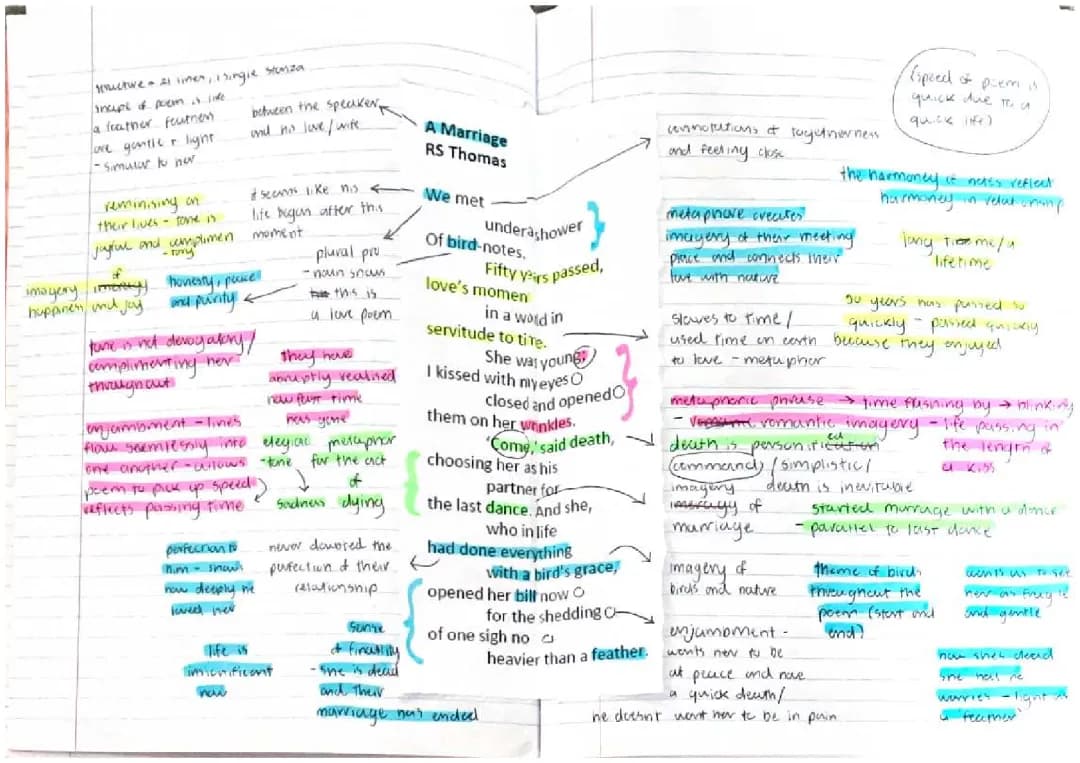 structure = 21 lines, 1 single stanza
shape of poem is like
a feather feathers
are gentle + light
- similar to her
between the speaker
and his love/wife
A Marriage
RS Thomas
(speed of poem is
quick due to a
quick life)
connotations of togetherness
and feeling close
the harmoney of notes reflect
harmoney in relationship
We met
under a shower
Of bird-notes.
Fifty years passed,
love's momen
in a world in
servitude to time.
She was young;
I kissed with my eyes
closed and opened
them on her wrinkles.
'Come,' said death,
choosing her as his
partner for
the last dance. And she,
who in life
had done everything
with a bird's grace,
opened her bill now
for the shedding
of one sigh no
heavier than a feather.
reminising on
their lives - tone is
joyful and complimen
-tary
it seems like his
life began after this
moment
plural pro
-noun shows
this is
a love poem
imagery of
happiness and joy
honesty, peace
and purity
tone is not derogatory/
complimenting her
throughout
they have
abruptly realised
how fast time
has gone
enjambment - lines
flow seamlessly into
one another - allows
poem to pick up speed
reflects passing time
elegiac
-tone
sadness
metaphor
for the act
of
dying
perfection to
him - shows
how deeply he
loved her
never doubted the
perfection of their
relationship
life is
insignificant
now
sense
of finality
- she is dead
and their
marriage has ended
metaphore creates
imagery of their meeting
place and connects their
love with nature
long time/a
lifetime
slaves to time/
used time on earth
to love - metaphor
50 years has passed so
quickly - passed quickly
because they enjoyed
metaphoric phrase → time flashing by → blinking
- romantic imagery - life passing in
the length of
a kiss
death is personified
(command)/simplistic/
death is inevitable
imagery of
marriage
started marriage with a dance
- parallel to last dance
imagery of
birds and nature
theme of birds
throughout the
poem (start and
end)
wants us to see
her as fragile
and gentle
enjambment -
wants her to be
at peace and have
a quick death/
he doesn't want her to be in pain
now shes dead
she has no
worries - light as
a 'feather'